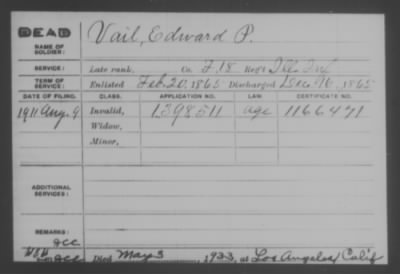 DEAD
NAME OF SOLDIER: Vail, Edward P.
SERVICE: Late rank, Co. F. 18 Reg't Ill. Inf
TERM OF SERVICE: Enlisted Feb. 20, 1865 Discharged Dec. 16, 1865
DATE OF FILING. CLASS. APPLICATION NO. LAW. CERTIFICATE NO.
1911 Aug. 9 Invalid, 1398511 age 1166471
Widow,
Minor,
ADDITIONAL SERVICES:
REMARKS:
Died May 3, 1923, at Los Angeles, Calif